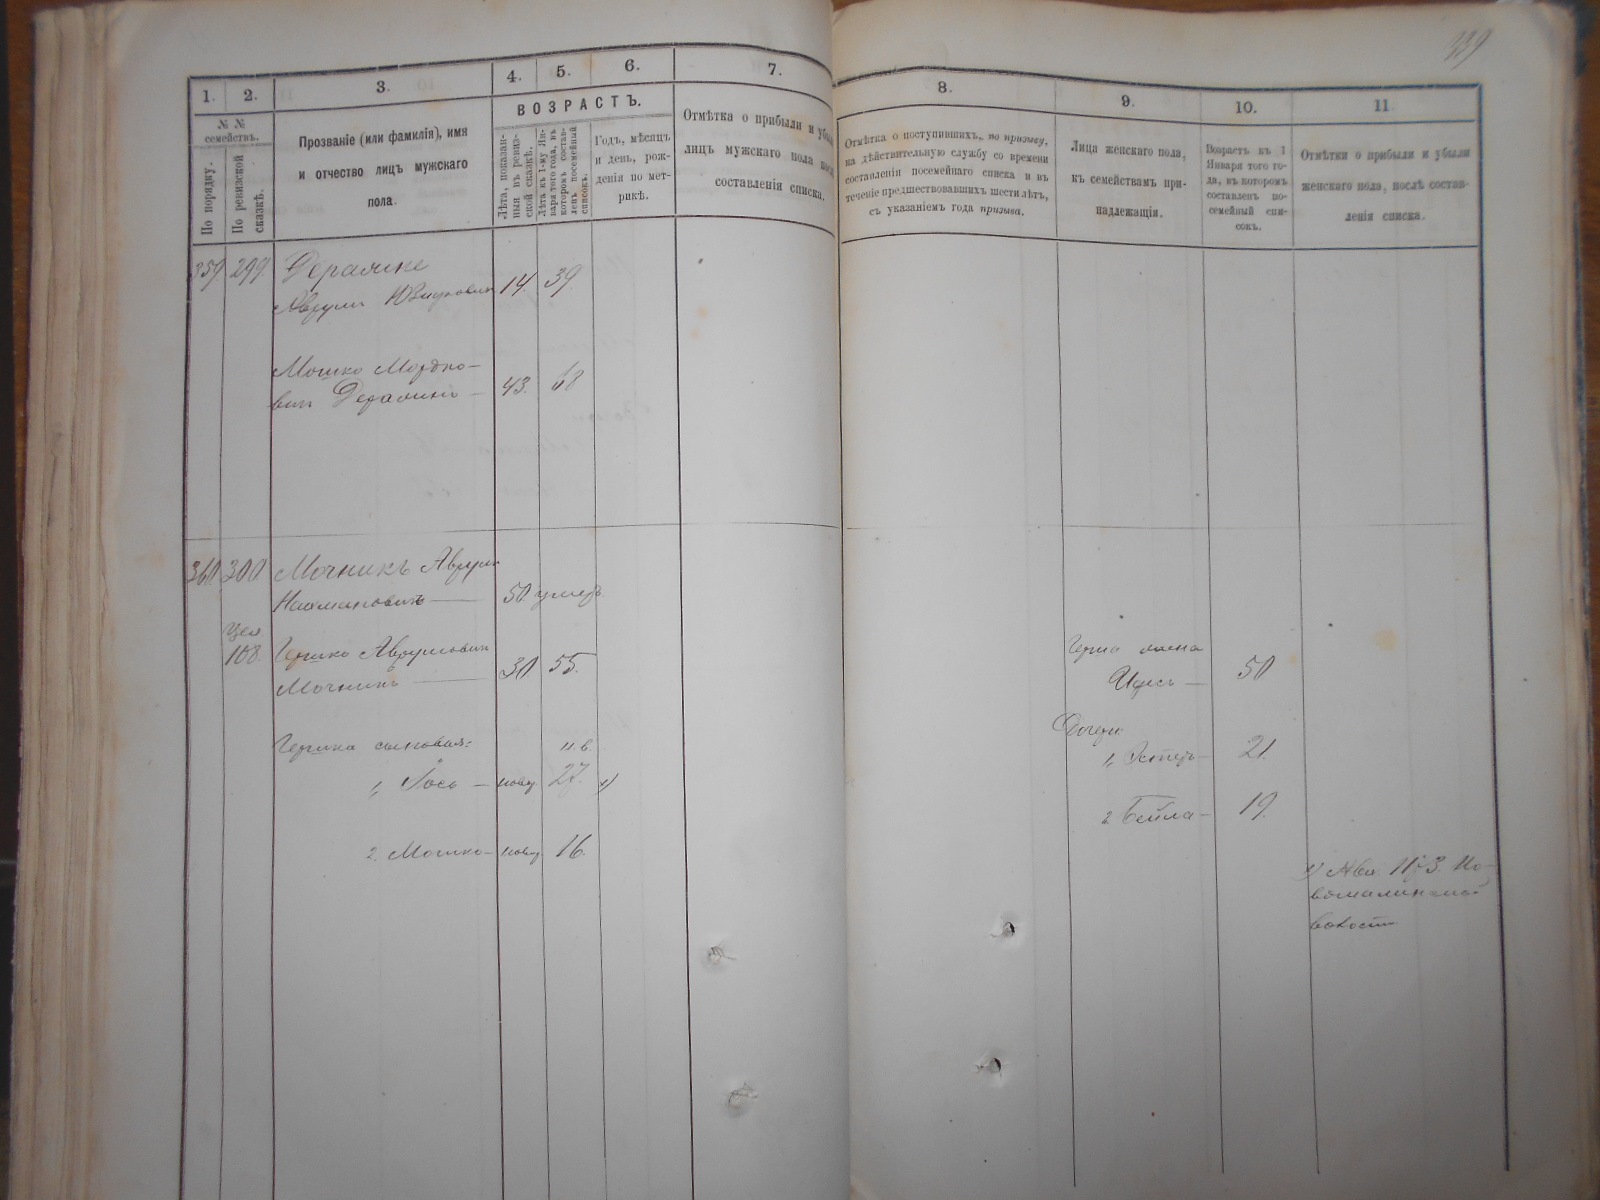 339
1.
2.
3.
4.
5.
6.
7.
8.
9.
10.
11.
№ №
семействъ.
По порядку.
По ревизской
сказкѣ.
Прозваніе (или фамилія), имя
и отчество лицъ мужскаго
пола.
ВОЗРАСТЪ.
Лѣта, показан-
ныя въ ревиз-
ской сказкѣ.
Лѣта къ 1-му Ян-
варя того года, въ
которомъ состав-
ленъ посемейный
списокъ.
Годъ, мѣсяцъ
и день, рож-
денія по мет-
рикѣ.
Отмѣтка о прибыли и убыли
лицъ мужскаго пола послѣ
составленія списка.
Отмѣтка о поступившихъ, по призыву,
на дѣйствительную службу со времени
составленія посемейнаго списка и въ
теченіе предшествовавшихъ шести лѣтъ,
съ указаніемъ года призыва.
Лица женскаго пола,
къ семействамъ при-
надлежащія.
Возрастъ къ 1
Января того го-
да, въ которомъ
составленъ по-
семейный спи-
сокъ.
Отмѣтки о прибыли и убыли
женскаго пола, послѣ состав-
ленія списка.
359 299.
Аврумъ 14. 39
Мошко Мордко-
вичъ 43. 68
360 300 Мочникъ Аврумъ
Нахмановичъ — 50. умеръ.
108. Гершко Аврумовичъ
Мочникъ — 30 55.
Гершка сыновья:
1, Іось — новор. 27. х)
2. Мошко — новор. 16.
Герша жена
— 50
Дочери
1, Эстеръ — 21.
2. Бейла — 19.